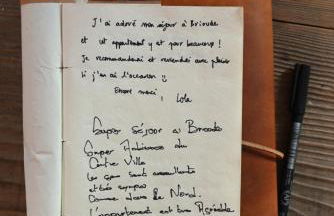 J'ai adoré mon séjour à Brioude
et cet appartement y est pour beaucoup !
Je recommanderai et reviendrai avec plaisir
si j'en ai l'occasion !!
Encore merci,
Lola
Super séjour à Brioude
Super Adresse du
Centre Ville
les gens sont accueillants
et très sympas
Comme dans le Nord.
l'appartement est très Agréable